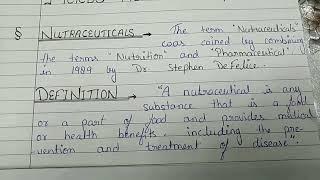 § NUTRACEUTICALS → The term "Nutraceuticals"
was coined by combining
the terms "Nutrition" and "Pharmaceutical"
in 1989 by Dr. Stephen DeFelice.
DEFINITION → "A nutraceutical is any
substance that is a food
or a part of food and provides medical
or health benefits, including the pre-
vention and treatment of disease".